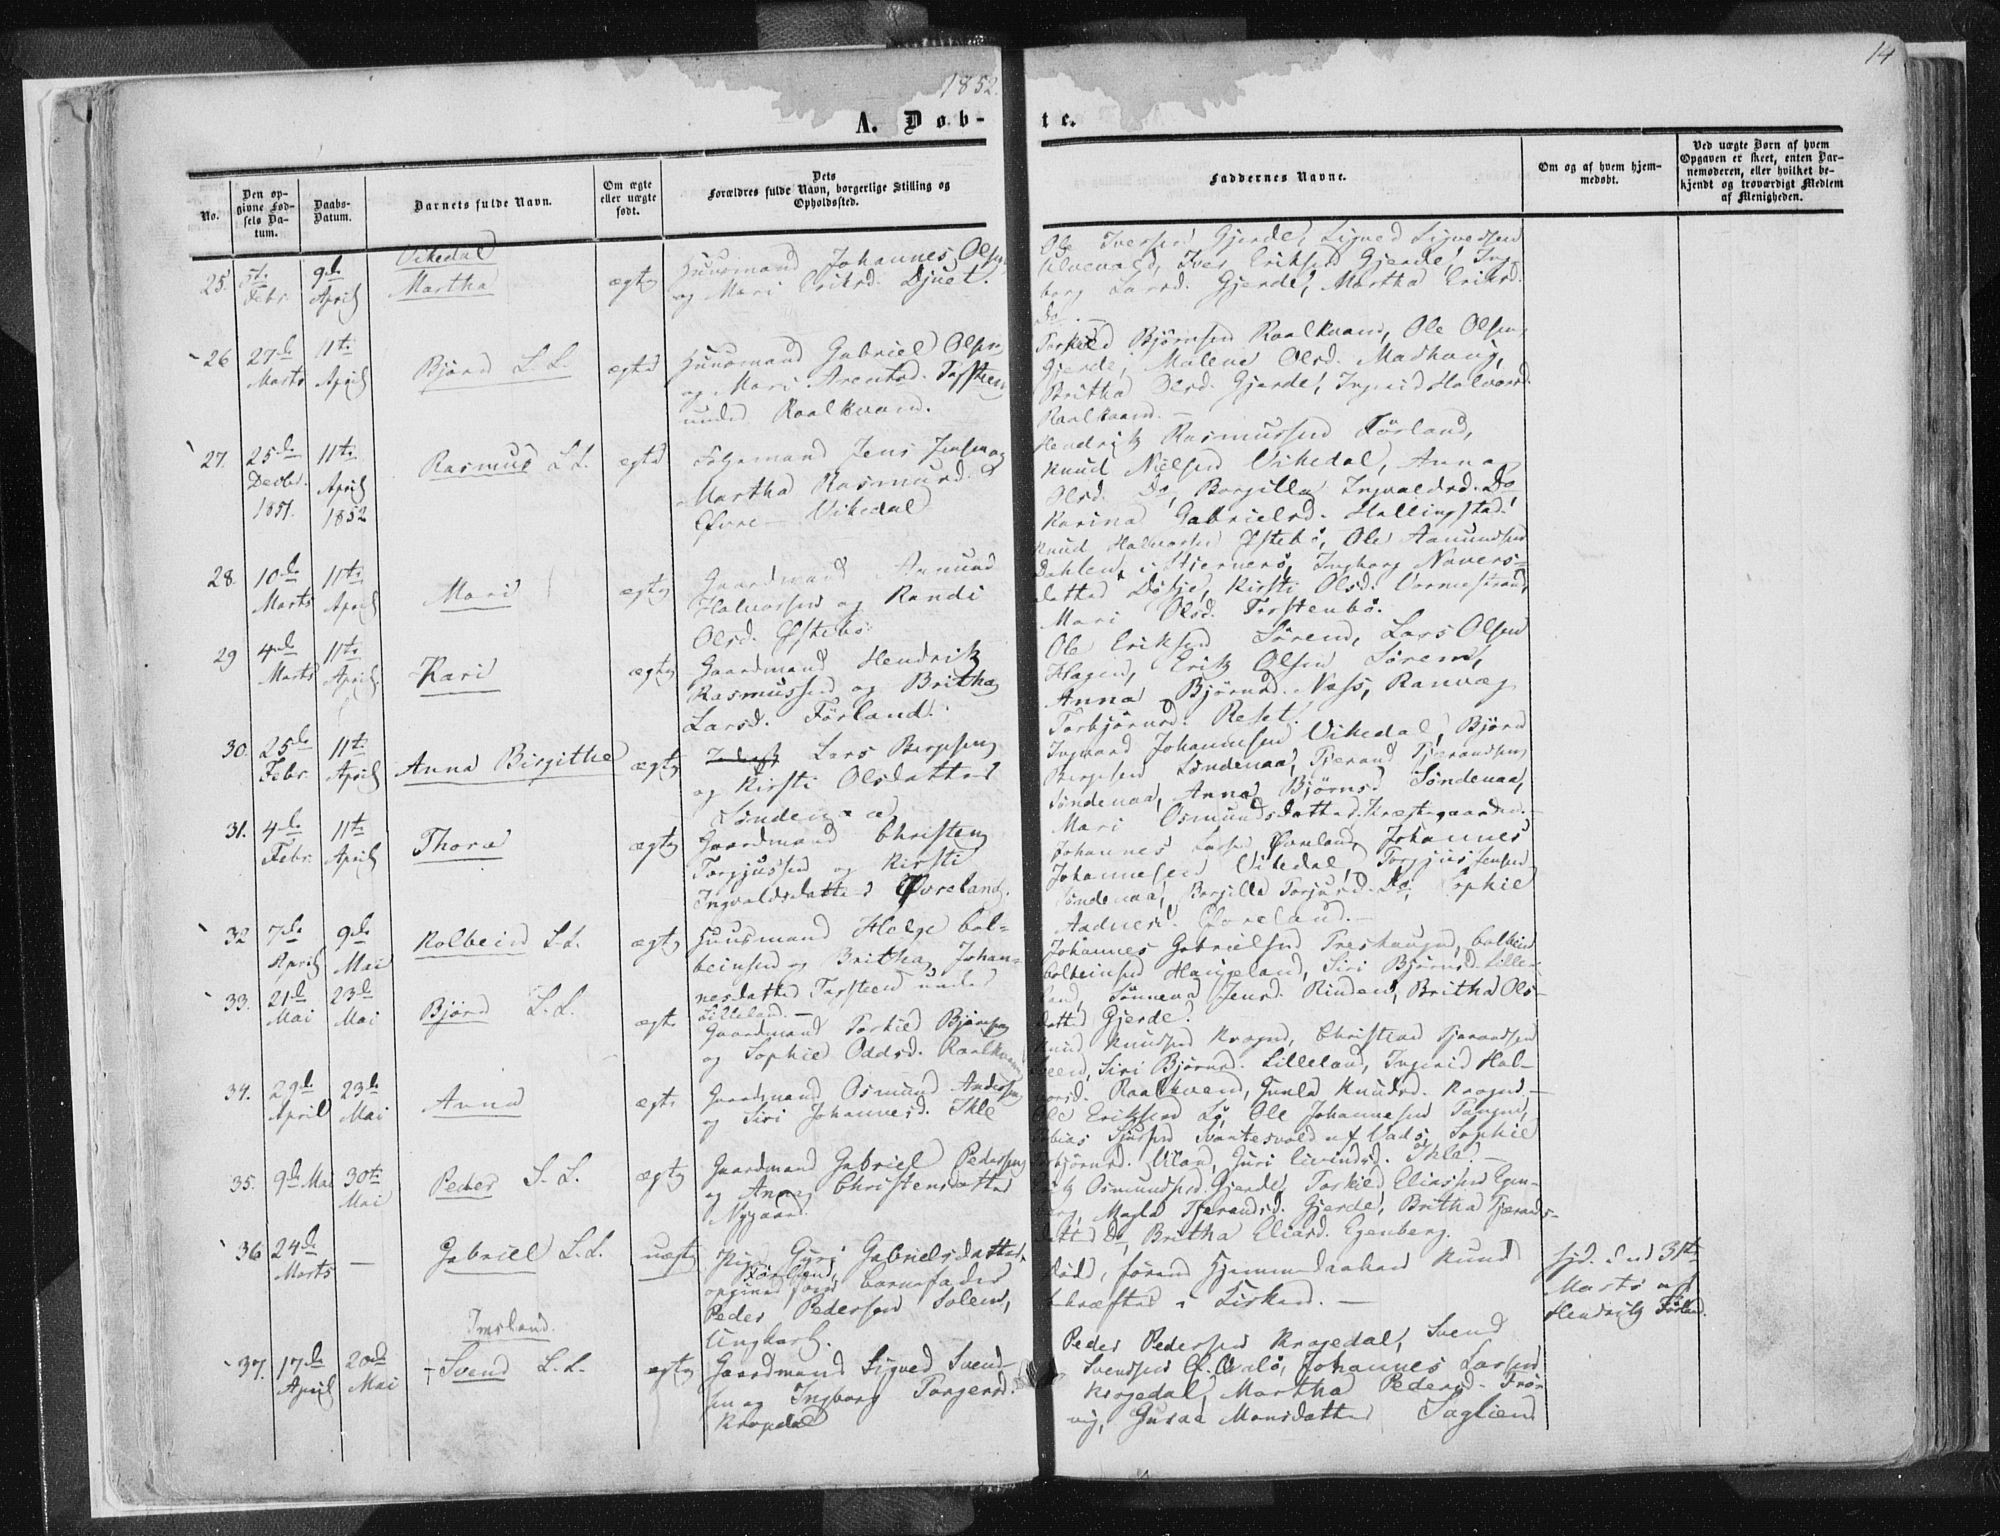 1852.
14
A. Døb-
te.
No.
Den op-
givne Fød-
sels Da-
tum.
Daabs-
Datum.
Barnets fulde Navn.
Om ægte
eller uægte
født.
Dets
Forældres fulde Navn, borgerlige Stilling og
Opholdssted.
Faddernes Navne.
Om og af hvem hjem-
medøbt.
Ved uægte Børn af hvem
Opgaven er skeet, enten Bar-
nemoderen, eller hvilket be-
kjendt og troværdigt Medlem
af Menigheden.
Vikedal
25. 5te Febr. 9de April Martha ægte
Huusmand Johannes Olsen
og Mari Eriksd. Djuet.
Ole Iversen Gjerde, Sigved Sigvedsen
Iver Eriksen Gjerde, Inge-
borg Larsd. Gjerde, Martha Eriksd.
Do
26 27de Marts 11te April Bjørn L.L. ægte
Huusmand Gabriel Olsen
og Mari Arentsd.
under Raalkvam.
Torkild Bjørnsen Raalkvam, Ole Olsen
Gjerde, Malene Olsd. Madhoug,
Britha Olsd. Gjerde, Ingrid Halvorsd.
Raalkvam.
27. 25de Decbr. 1851. 11te April 1852 Rasmus L.L. ægte
Jens Jensen og
Martha Rasmusd.
Øvre Vikedal
Hendrik Rasmussen Førland,
Knud Nielsen Vikedal, Anna
Olsd. Do, Borgilla Ingvaldsd. Do
Karina Gabrielsd. Hallingstad.
28. 10de Marts 11te April Mari ægte
Gaardmand Aamund
Halvorsen og Randi
Olsd. Østebø.
Knud Halvorsen Østebø, Ole Aamundsen
Dahlen i Stjernerø, Ingborg Navers-
datter Døskje, Kirsti Olsd. Vormestrand,
Mari Olsd. Torstenbø.
29 4de Marts 11te April Kari ægte
Gaardmand Hendrik
Rasmussen og Britha
Larsd. Førland.
Ole Eriksen Sørem, Lars Olsen
Hagen, Erik Olsen Sørem,
Anna Bjørnsd. Næss, Ranvæg
Torbjørnsd. Reset.
30. 25de Febr. 11te April Anna Birgithe ægte
Lars Bergesen
og Kirsti Olsdatter
Søndenaa
Ingvard Johannesen Vikedal, Bjørn
Bergesen Søndenaa, Tjerand Tjerandsen
Søndenaa, Anna Bjørnsd Søndenaa,
Mari Osmundsdatter Præstegaarden.
31. 4de Febr. 11te April Thora ægte
Gaardmand Christen
Torgjussen og Kirsti
Ingvaldsdatter Øvreland.
Johannes Larsen Øvreland, Johannes
Johannesen Vikedal, Torgjus Jensen
Søndenaa, Borgilla Torjusd. Do, Sophie
Aadnesd. Øvreland.
32 7de April 9de Mai Kolbein L.L. ægte
Huusmand Helge Col-
beinsen og Britha Johan-
nesdatter Tagsteen under
Lilleland.
Johannes Gabrielsen Treshaugen, Colbein
Colbeinsen Haugeland, Siri Bjørnsd. Lille-
land, Sønneva Jensd. Rinden, Britha Ols-
datter Gjerde.
33. 21de Mai 23de Mai Bjørn L.L. ægte
Gaardmand Torkild Bjørnsen
og Sophie Oddsd. Raalkvam
Knud Knudsen Krogen, Christian Tjerandsen
Steen, Siri Bjørnsd. Lilleland, Ingerid Hal-
vorsd. Raalkvam, Gunla Knudsd. Krogen.
34. 29de April 23de Mai Anna ægte
Gaardmand Osmund Andersen
og Siri Johannesd. Ikle
Ole Eriksen Lø, Ole Johannesen Tangen,
Tobias Sjursen Svantesvold af Vads, Sophie
Torbjørnsd. Øland, Guri Eivindsd. Ikle.
35. 9de Mai 30te Mai Peder L.L. ægte
Gaardmand Gabriel Pedersen
og Anna Christensdatter
Nygaard.
Erik Osmundsen Gjerde, Torkild Eliassen Egen-
berg, Magla Tjerandsd. Gjerde, Britha Tjerands-
datter Do, Britha Eliasd. Egenberg.
36 24de Marts — Gabriel L.L. uægte
Pige Guri Gabrielsdatter
Førland,
opgiven som barnefader
Peder Pedersen Solem,
Ungkarl.
død, førend Hjemmedaaben kunde
bekræftes i Kirken.
hjd. den 31te
Marts af
Hendrik Førland.
Imsland.
37. 17de April 20de Mai + Svend L.L. ægte
Gaardmand Sigved Svend-
sen og Ingborg Torgersd.
Krogedal
Peder Pedersen Krogedal, Svend
Svendsen Johannes Larsen
Krogedal, Martha Pedersd. Frør-
vig, Guroe Monsdatter Taglien